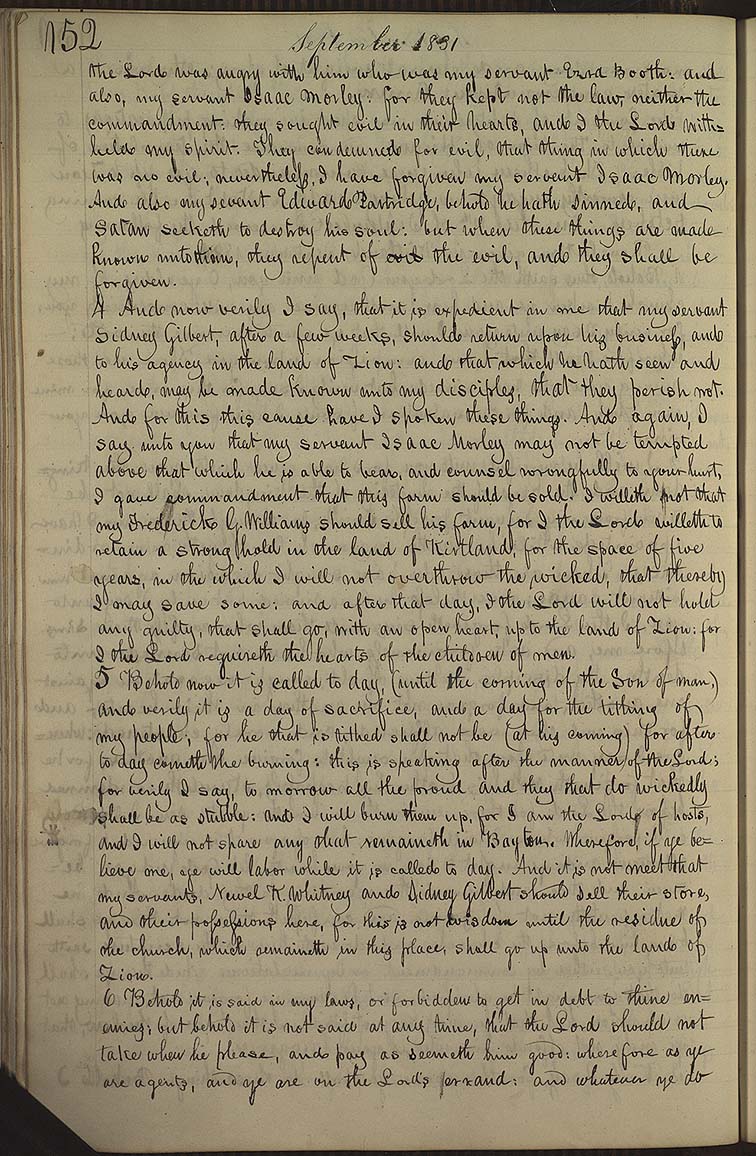 152
September 1831
the Lord was angry with him who was my servant Ezra Booth: and
also, my servant Isaac Morley: for they kept not the law, neither the
commandment: they sought evil in their hearts, and I the Lord with=
held my spirit. They condemned for evil, that thing in which there
was no evil; nevertheless, I have forgiven my servant Isaac Morley.
And also my sevant Edward Partridge, behold he hath sinned, and
Satan seeketh to destroy his soul: but when these things are made
known unto him, they repent of evil the evil, and they shall be
forgiven.
4 And now verily I say, that it is expedient in me that my servant
Sidney Gilbert, after a few weeks, should return upon his business, and
to his agency in the land of Zion: and that which he hath seen and
heard, may be made known unto my disciples, that they perish not.
And for this this cause have I spoken these things. And again, I
say unto you that my servant Isaac Morley may not be tempted
above that which he is able to bear, and counsel wrongfully to your hurt,
I gave commandment that this farm should be sold. I willith not that
my Frederick G. Williams should sell his farm, for I the Lord willeth to
retain a strong hold in the land of Kirtland, for the space of five
years, in the which I will not overthrow the wicked, that thereby
I may save some: and after that day, I the Lord will not hold
any guilty, that shall go, with an open heart, up to the land of Zion: for
I the Lord requireth the hearts of the children of men.
5 Behold now it is called to day, (until the coming of the Son of man,)
and verily it is a day of sacrifice, and a day for the tithing of
my people; for he that is tithed shall not be (at his coming) for after
to day cometh the burning: this is speaking after the manner of the Lord;
for verily I say, to morrow all the proud and they that do wickedly
shall be as stubble: and I will burn them up, for I am the Lord of hosts,
and I will not spare any that remaineth in Baylon. Wherefore, if ye be=
lieve me, ye will labor while it is called to day. And it is not meet that
my servants, Newel K. Whitney and Sidney Gilbert should sell their store,
and their possessions here, for this is not wisdom until the residue of
the church, which remaineth in this place, shall go up unto the land of
Zion.
6 Behold it is said in my laws, or forbidden to get in debt to thine en=
emies; but behold it is not said at any time, that the Lord should not
take when he please, and pay as seemeth him good: wherefore as ye
are agents, and ye are on the Lord's errand: and whatever ye do